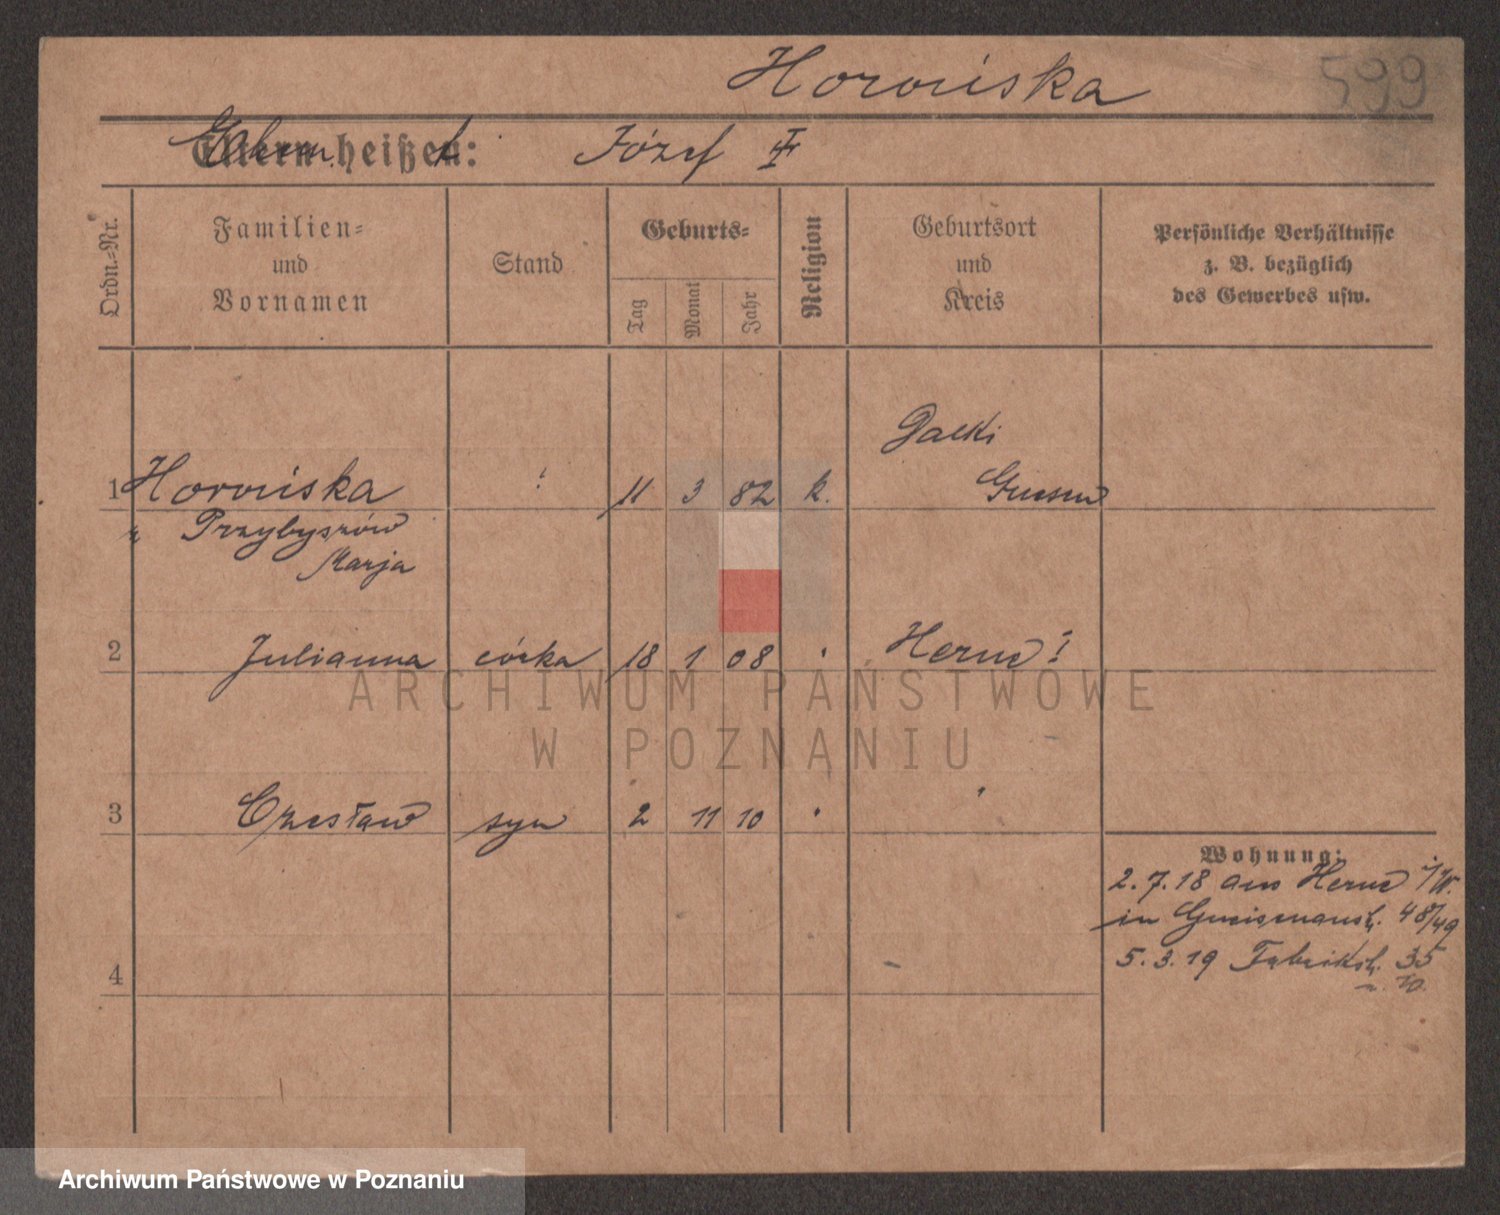 Horońska
599
Eltern heißen:
Józef
Ordn.-Nr.
Familien-
und
Vornamen
Stand
Geburts-
Tag
Monat
Jahr
Religion
Geburtsort
und
Kreis
Persönliche Verhältnisse
z. B. bezüglich
des Gewerbes usw.
1 Horońska 11 3 82 k.
Przybyszów
Marja
2 Julianna córka 18 1 08 Herne
ARCHIWUM PAŃSTWOWE
W POZNANIU
3 Czesław syn 2 11 10
4
Wohnung:
2.7.18 aus Herne i/W.
in Gneisenaustr. 48/49
5.3.19 Fabrikstr. 35
Archiwum Państwowe w Poznaniu